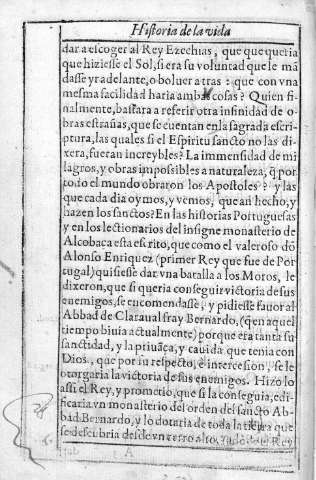 Historia de la vida
dar a escoger al Rey Ezechias, que que queria
que hiziesse el Sol, si era su voluntad que le mã
dasse yr adelante, o boluer atras : que con vna
mesma facilidad haria ambas cosas? Quien fi-
nalmente, bastara a referir otra infinidad de o-
bras estrañas, que se cuentan en la sagrada escri-
ptura, las quales si el Espiritu sancto no las di-
xera, fueran increybles? La immensidad de mi
lagros, y obras impossibles a naturaleza, q̃ por
todo el mundo obraron los Apostoles? y las
que cada dia oymos, y vemos, que an hecho, y
hazen los sanctos? En las historias Portuguesas
y en los lectionarios del insigne monasterio de
Alcobaca esta escrito, que como el valeroso dõ
Alonso Enriquez (primer Rey que fue de Por
tugal) quisiesse dar vna batalla a los Moros, le
dixeron, que si queria conseguir victoria de sus
enemigos, se encomendasse, y pidiesse fauor al
Abbad de Claraual fray Bernardo, (q̃ en aquel
tiempo biuia actualmente) porque era tanta su
sanctidad, y la priuãça, y cauida que tenia con
Dios, que por su respecto, e intercesion, se le
otorgaria la victoria de sus enemigos. Hizo lo
assi el Rey, y prometio, que si la conseguia, edi-
ficaria vn monasterio del orden del sancto Ab-
bad Bernardo, y lo dotaria de toda la tierra que
se descubria desde vn cerro alto.
A